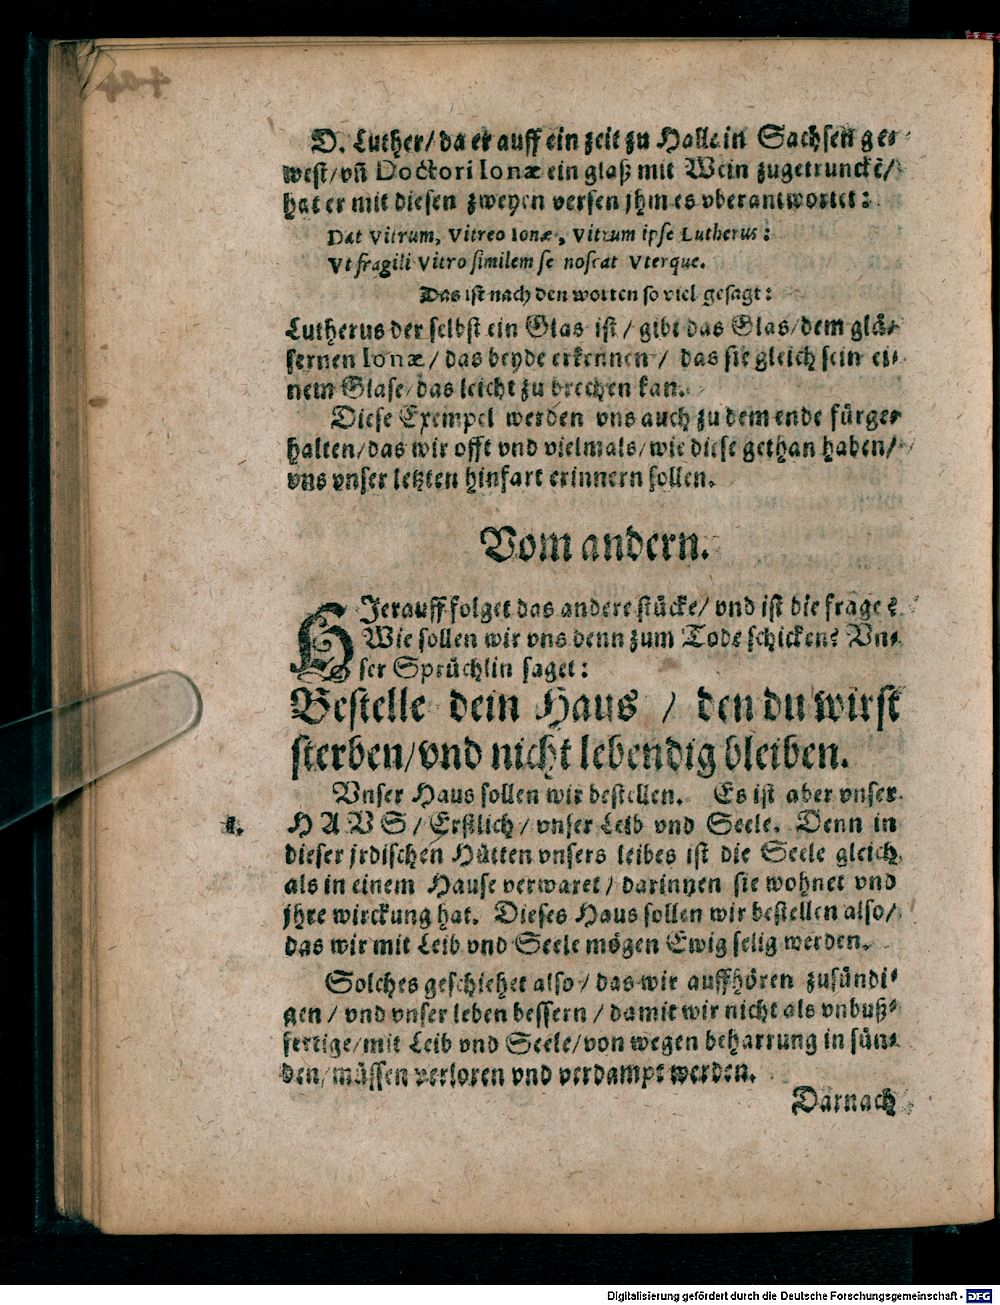 D. Luther/ da er auff ein zeit zu Halle in Sachsen ge-
west/ vñ Doctori Ionæ ein glaß mit Wein zugetrunckẽ/
hat er mit diesen zweyen versen jhm es vberantwortet:
Dat Vitrum, Vitreo Ionæ, Vitrum ipse Lutherus:
Vt fragili Vitro similem se noscat Vterque.
Das ist nach den worten so viel gesagt:
Lutherus der selbst ein Glas ist/ gibt das Glas/ dem glä-
sernen Ionæ/ das beyde erkennen/ das sie gleich sein ei-
nem Glase/ das leicht zu brechen kan.
Diese Exempel werden vns auch zu dem ende fürge-
halten/ das wir offt vnd vielmals/ wie diese gethan haben/
vns vnser letzten hinfart erinnern sollen.
Vom andern.
HJerauff folget das andere stücke/ vnd ist die frage?
Wie sollen wir vns denn zum Tode schicken? Vn-
ser Sprüchlin saget:
Bestelle dein Haus / den du wirst
sterben/ vnd nicht lebendig bleiben.
Vnser Haus sollen wir bestellen. Es ist aber vnser
1. HAVS/ Erstlich/ vnser Leib vnd Seele. Denn in
dieser jrdischen Hütten vnsers leibes ist die Seele gleich
als in einem Hause verwaret/ darinnen sie wohnet vnd
jhre wirckung hat. Dieses Haus sollen wir bestellen also/
das wir mit Leib vnd Seele mögen Ewig selig werden.
Solches geschiehet also/ das wir auffhören zusündi-
gen/ vnd vnser leben bessern/ damit wir nicht als vnbuß-
fertige/ mit Leib vnd Seele/ von wegen beharrung in sün-
den/ müssen verloren vnd verdampt werden.
Darnach
Digitalisierung gefördert durch die Deutsche Forschungsgemeinschaft - DFG